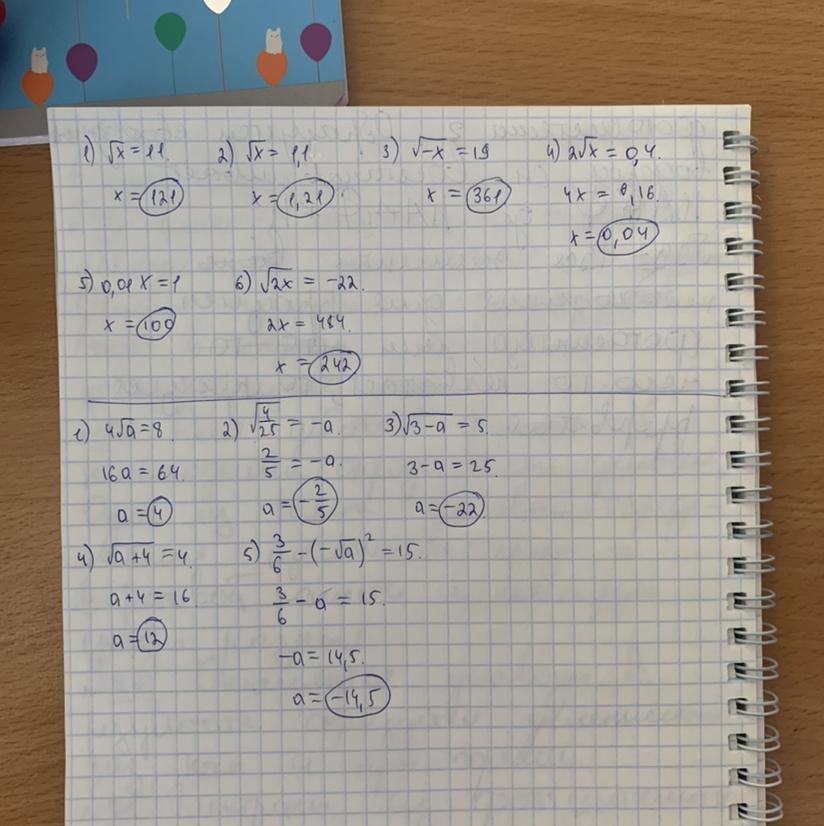 1) √x = 11. 2) √x = 1,1 3) √-x = 19 4) 2√x = 0,4.
x = 121 x = 1,21 x = 361 4x = 0,16.
x = 0,04
5) 0,01x = 1 6) √2x = -22.
x = 100 2x = 484.
x = 242
1) 4√a = 8. 2) √4/25 = -a. 3) √3-a = 5.
16a = 64. 2/5 = -a. 3-a = 25.
a = 4 a = -2/5 a = -22
4) √a+4 = 4. 5) 3/6 - (-√a)² = 15.
a+4 = 16. 3/6 - a = 15.
a = 12
-a = 14,5.
a = -14,5